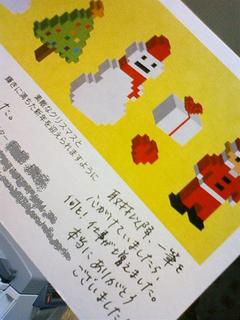 素敵なクリスマスと
輝きに満ちた新年を迎えられますように
た。
取材以降、一筆を
心がけていましたら、
何と！仕事が増えました。
本当にありがとう
ございました。